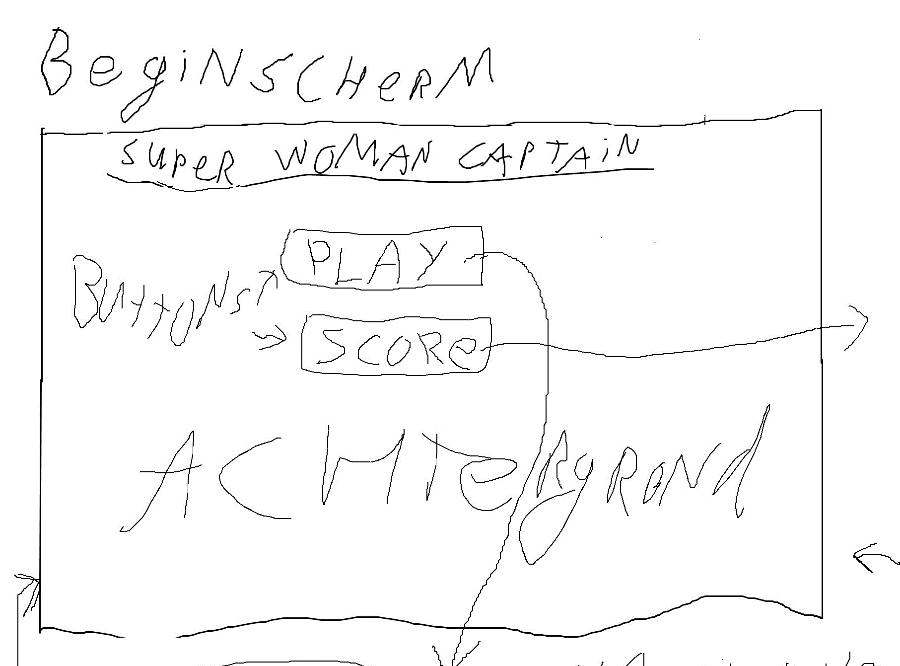 BegiNSCHeRM
SUPeR WOMAN CAPTAiN
PLAY
BUTTONS
SCORe
ACHTeRgROND